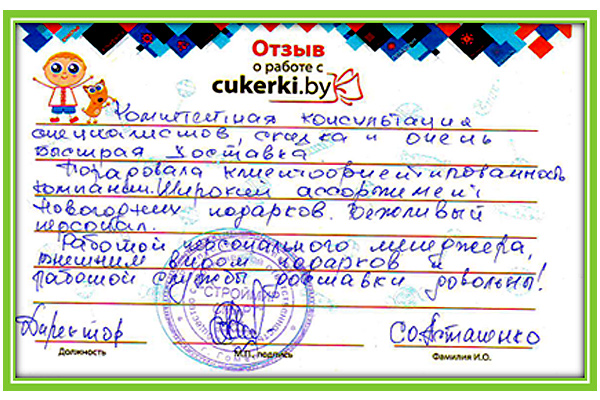 Отзыв
о работе с
cukerki.by
Компитентная консультация
специалистов, скидка и очень
быстрая доставка
Порадовала клиентоориентированность
компании. Широкий ассортимент
Новогодних подарков. Вежливый
персонал.
Работой персонального менеджера,
внешним видом подарков и
работой службы доставки довольны!
Директор
Должность
М.П., подпись
Фамилия И.О.